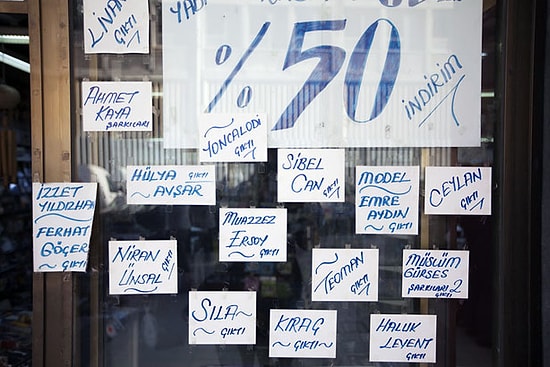 LİNA
ÇIKTI
YADI
% 50
İNDİRİM
AHMET
KAYA
ŞARKILARI
YONCALODİ
ÇIKTI
HÜLYA ÇIKTI
AVŞAR
SİBEL
CAN ÇIKTI
MODEL
EMRE
AYDIN
ÇIKTI
CEYLAN
ÇIKTI
İZZET
YILDIZHAN
FERHAT
GÖÇER
ÇIKTI
MUAZZEZ
ERSOY
ÇIKTI
NİRAN
ÜNSAL
ÇIKTI
TEOMAN
ÇIKTI
MÜSLÜM
GÜRSES
ŞARKILARI 2
ÇIKTI
SILA
ÇIKTI
KIRAÇ
ÇIKTI
HALUK
LEVENT
ÇIKTI